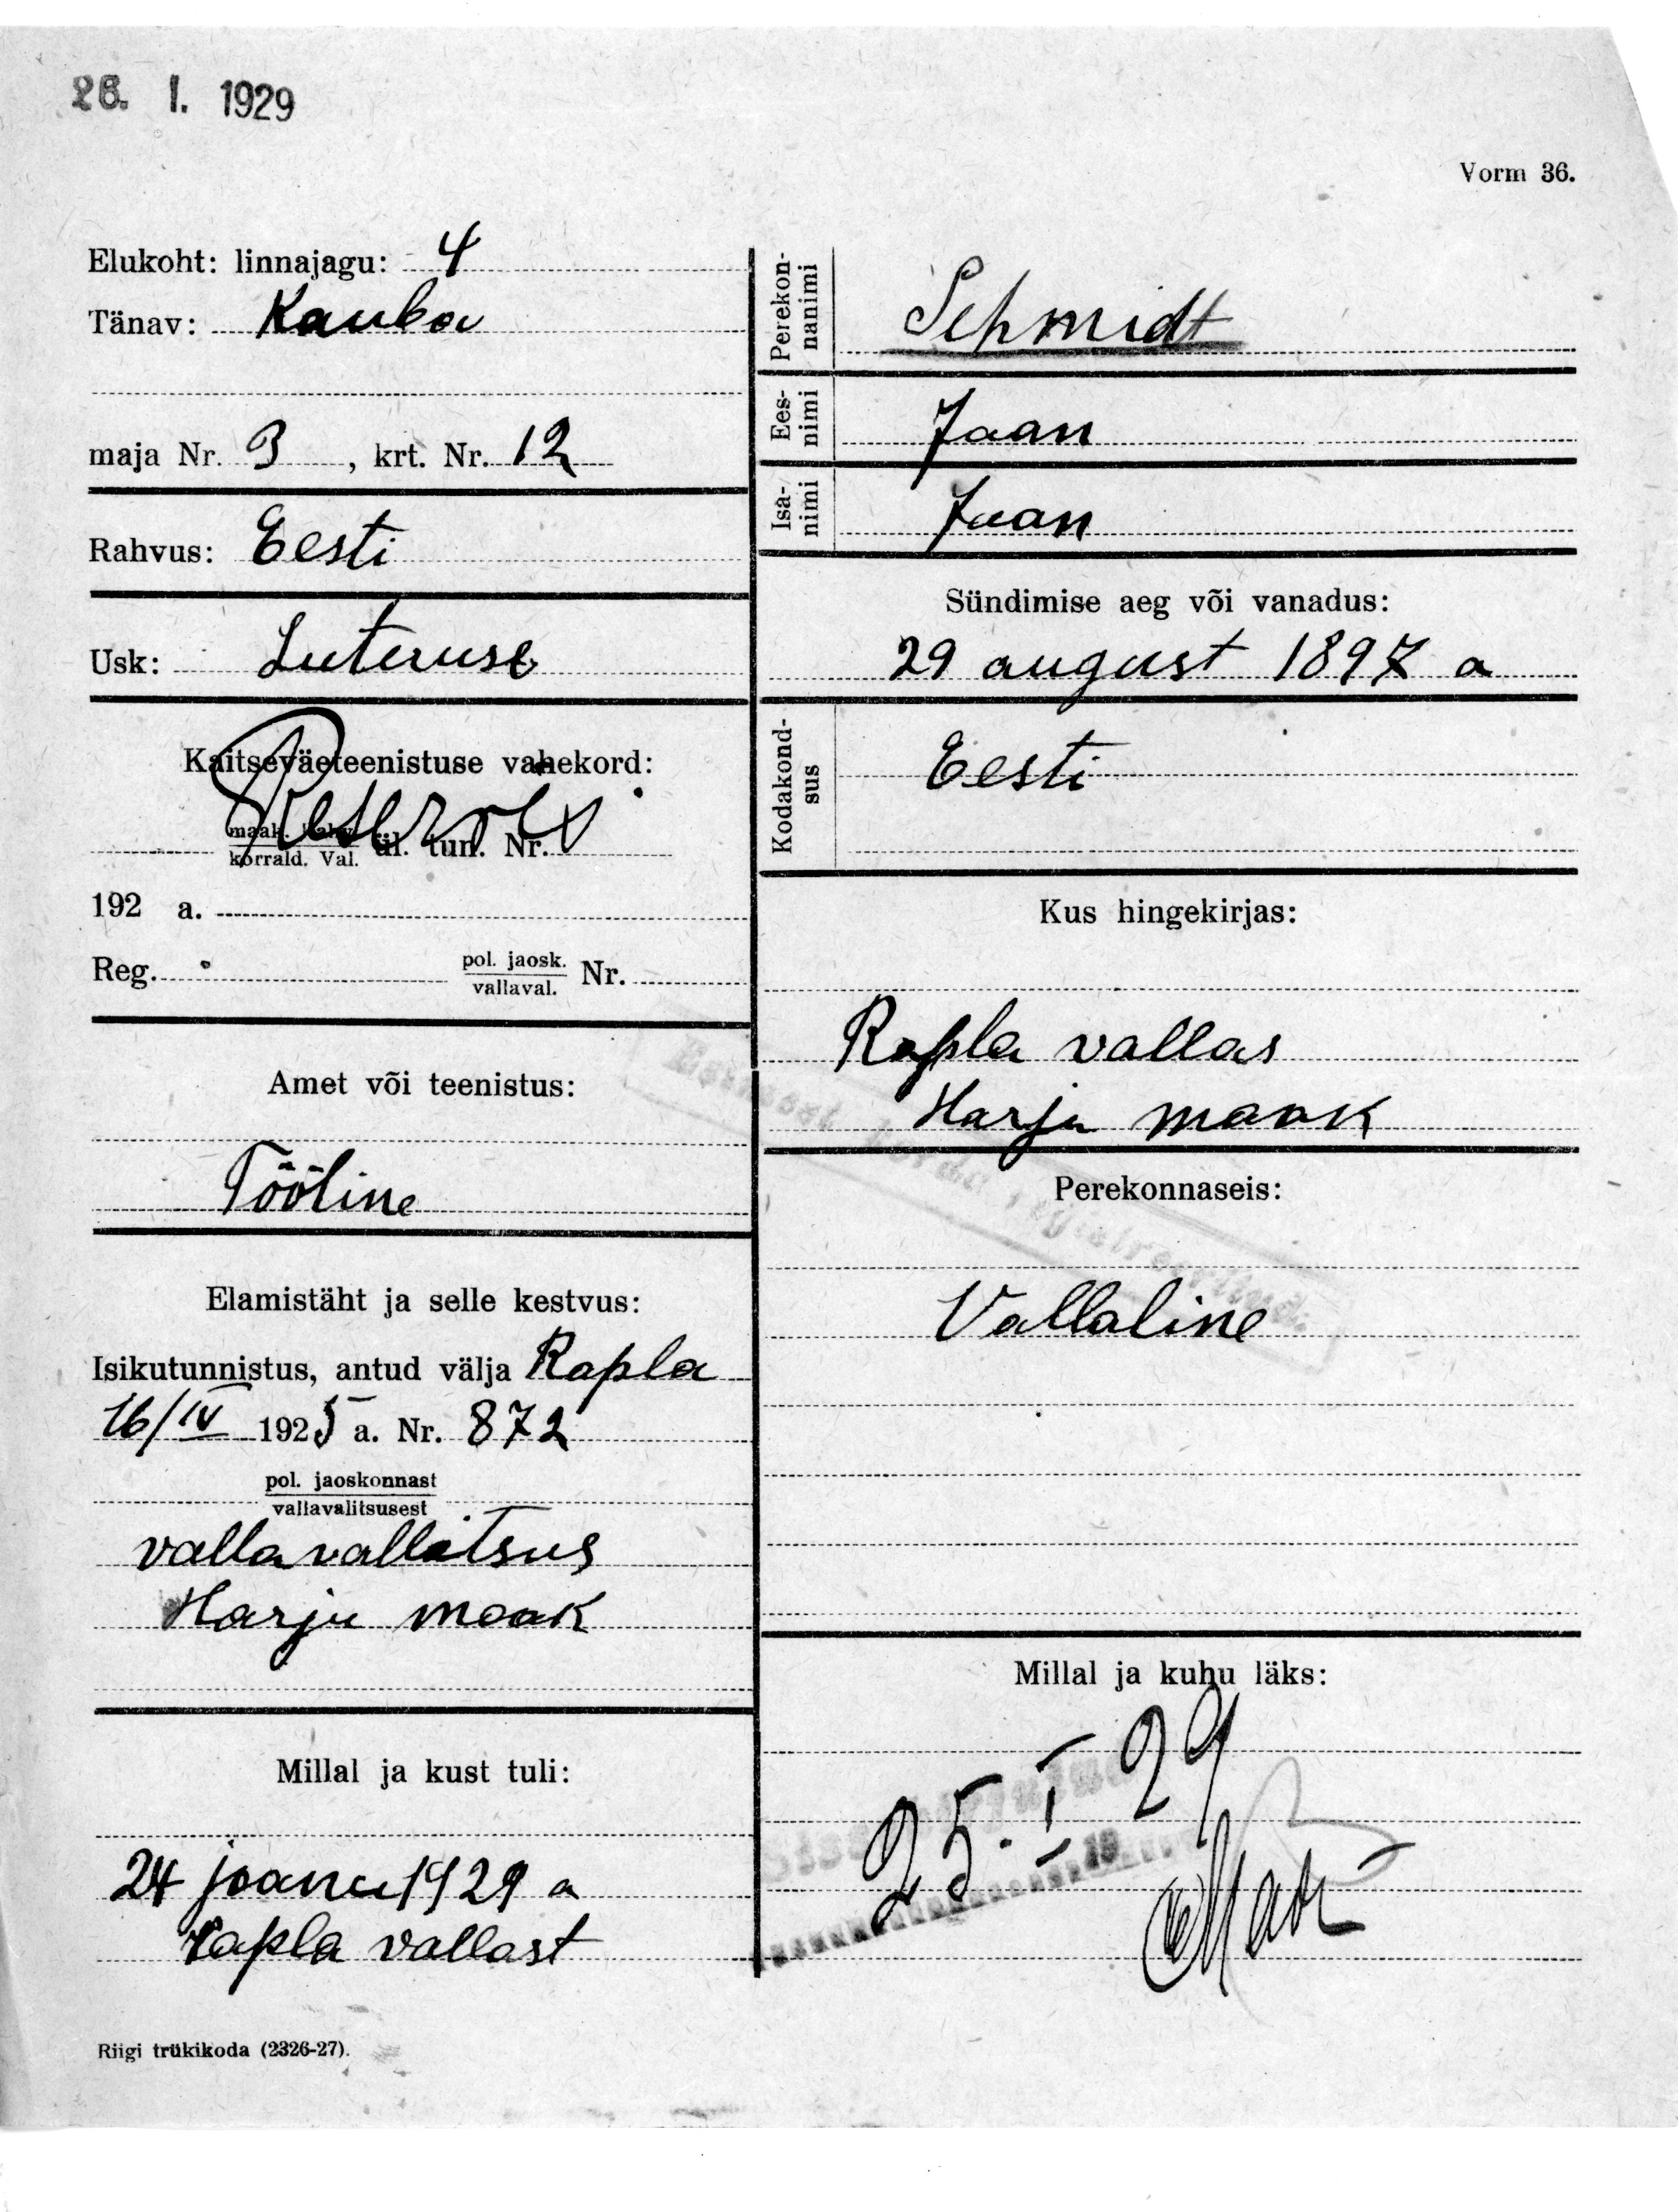 26. I. 1929
Vorm 36.
Elukoht: linnajagu: 4
Tänav: Kauba
maja Nr. 3, krt. Nr. 12
Rahvus: Eesti
Usk: Luteruse
Kaitseväeteenistuse vahekord:
Reservis
maak. rahv.
korrald. Val. ül. tun. Nr.
192 a.
Reg. pol. jaosk.
vallaval. Nr.
Amet või teenistus:
Tööline
Elamistäht ja selle kestvus:
Isikutunnistus, antud välja Rapla
16/IV 1925 a. Nr. 872
pol. jaoskonnast
vallavalitsusest
vallavallitsus
Harju maak
Millal ja kust tuli:
24 jaanu 1929 a
Rapla vallast
Riigi trükikoda (2326-27).
Perekon-
nanimi
Schmidt
Ees-
nimi
Jaan
Isa-
nimi
Jaan
Sündimise aeg või vanadus:
29 august 1897 a
Kodakond-
sus
Eesti
Kus hingekirjas:
Rapla vallas
Harju maak
Perekonnaseis:
Vallaline
Millal ja kuhu läks:
25. I 29